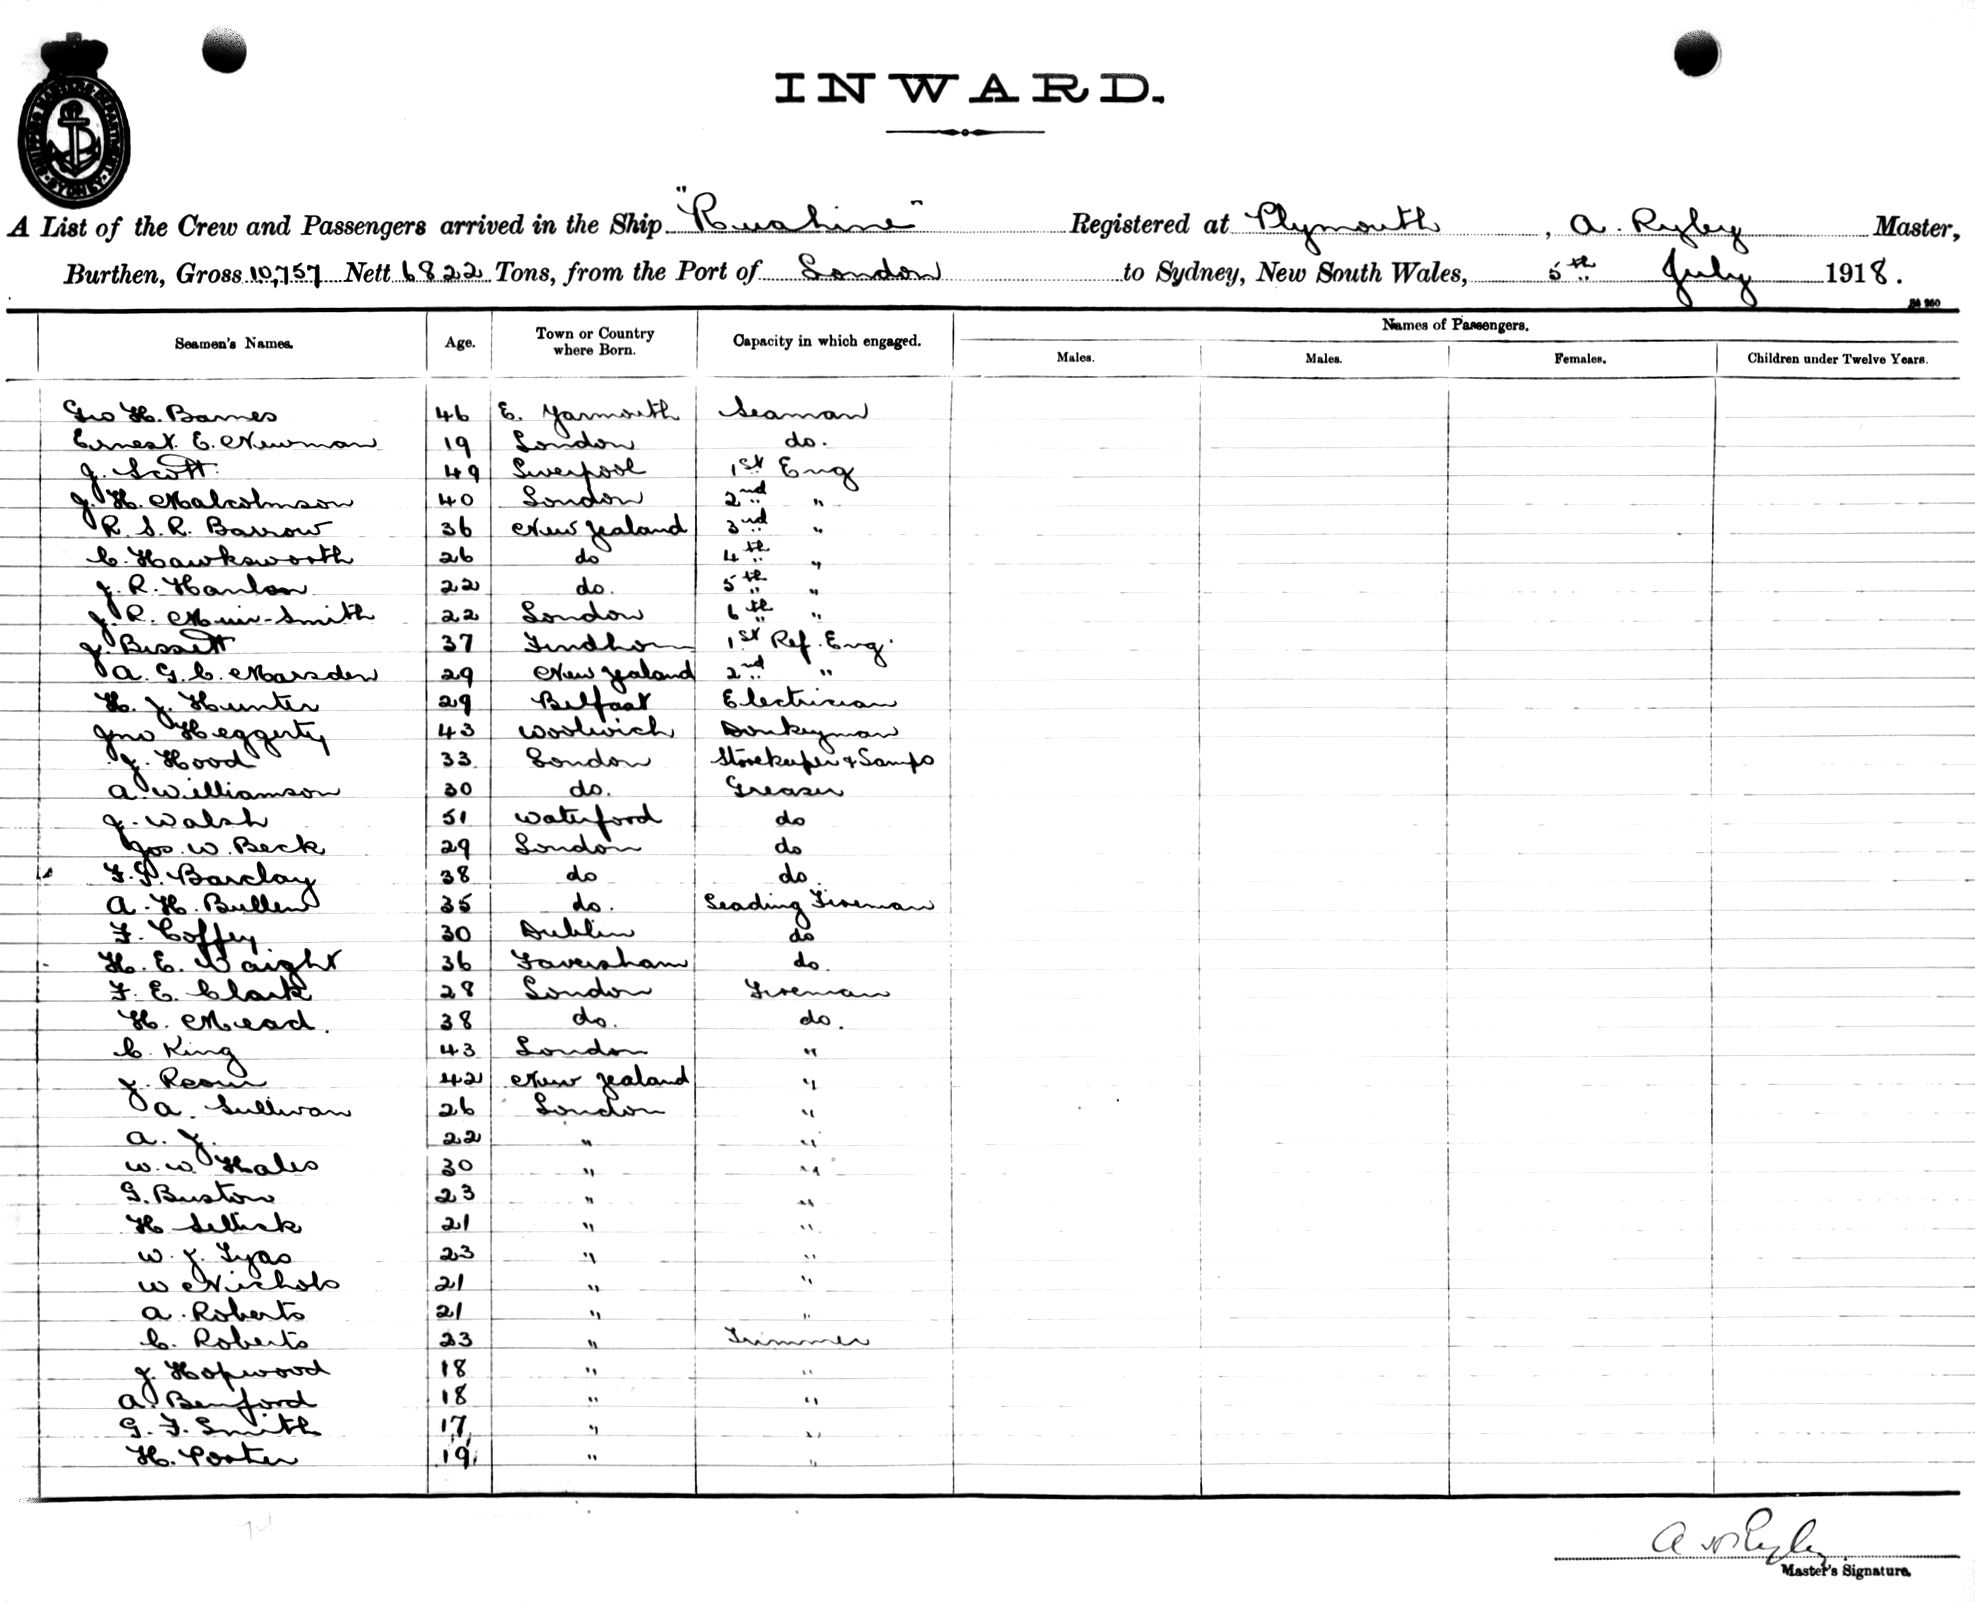 SHIPPING MASTERS DEPARTMENT SYDNEY
INWARD.
A List of the Crew and Passengers arrived in the Ship "Ruahine" Registered at Plymouth, A. Ryley Master,
Burthen, Gross 10,757 Nett 6822 Tons, from the Port of London to Sydney, New South Wales, 5th July 1918.
Names of Passengers.
Seamen's Names. Age. Town or Country where Born. Capacity in which engaged. Males. Males. Females. Children under Twelve Years.
Geo H. Barnes 46 E. Yarmouth Seaman
Ernest E. Newman 19 London do.
J. Scott 49 Liverpool 1st Eng
J. H. Malcolmson 40 London 2nd "
R. S. R. Barrow 36 New Zealand 3rd "
C. Hawksworth 26 do 4th "
J. R. Hanlon 22 do. 5th "
J. R. Muir-Smith 22 London 6th "
J. Bissett 37 Findhorn 1st Ref. Eng.
A. G. C. Marsden 29 New Zealand 2nd "
H. J. Hunter 29 Belfast Electrician
Jno Heggerty 43 Woolwich Donkeyman
J. Hood 33 London Storekeeper & Lamps
A. Williamson 30 do. Greaser
J. Walsh 51 Waterford do
Jos. W. Beck 29 London do
F. G. Barclay 38 do do
A. H. Bullen 35 do. Leading Fireman
F. Coffey 30 Dublin do
H. E. Waight 36 Faversham do.
F. E. Clark 28 London Fireman
H. Mead. 38 do. do.
C. King 43 London "
J. 42 New Zealand "
A. Sullivan 26 London "
A. J. 22 " "
W. W. Hales 30 " "
G. Buston 23 " "
H 21 " "
W. J. Tyas 23 " "
W Nichols 21 " "
A. Roberts 21 " "
C. Roberts 23 " Trimmer
J. Hopwood 18 " "
A. Benford 18 " "
G. F. Smith 17 " "
H. Porter 19 " "
Master's Signature.